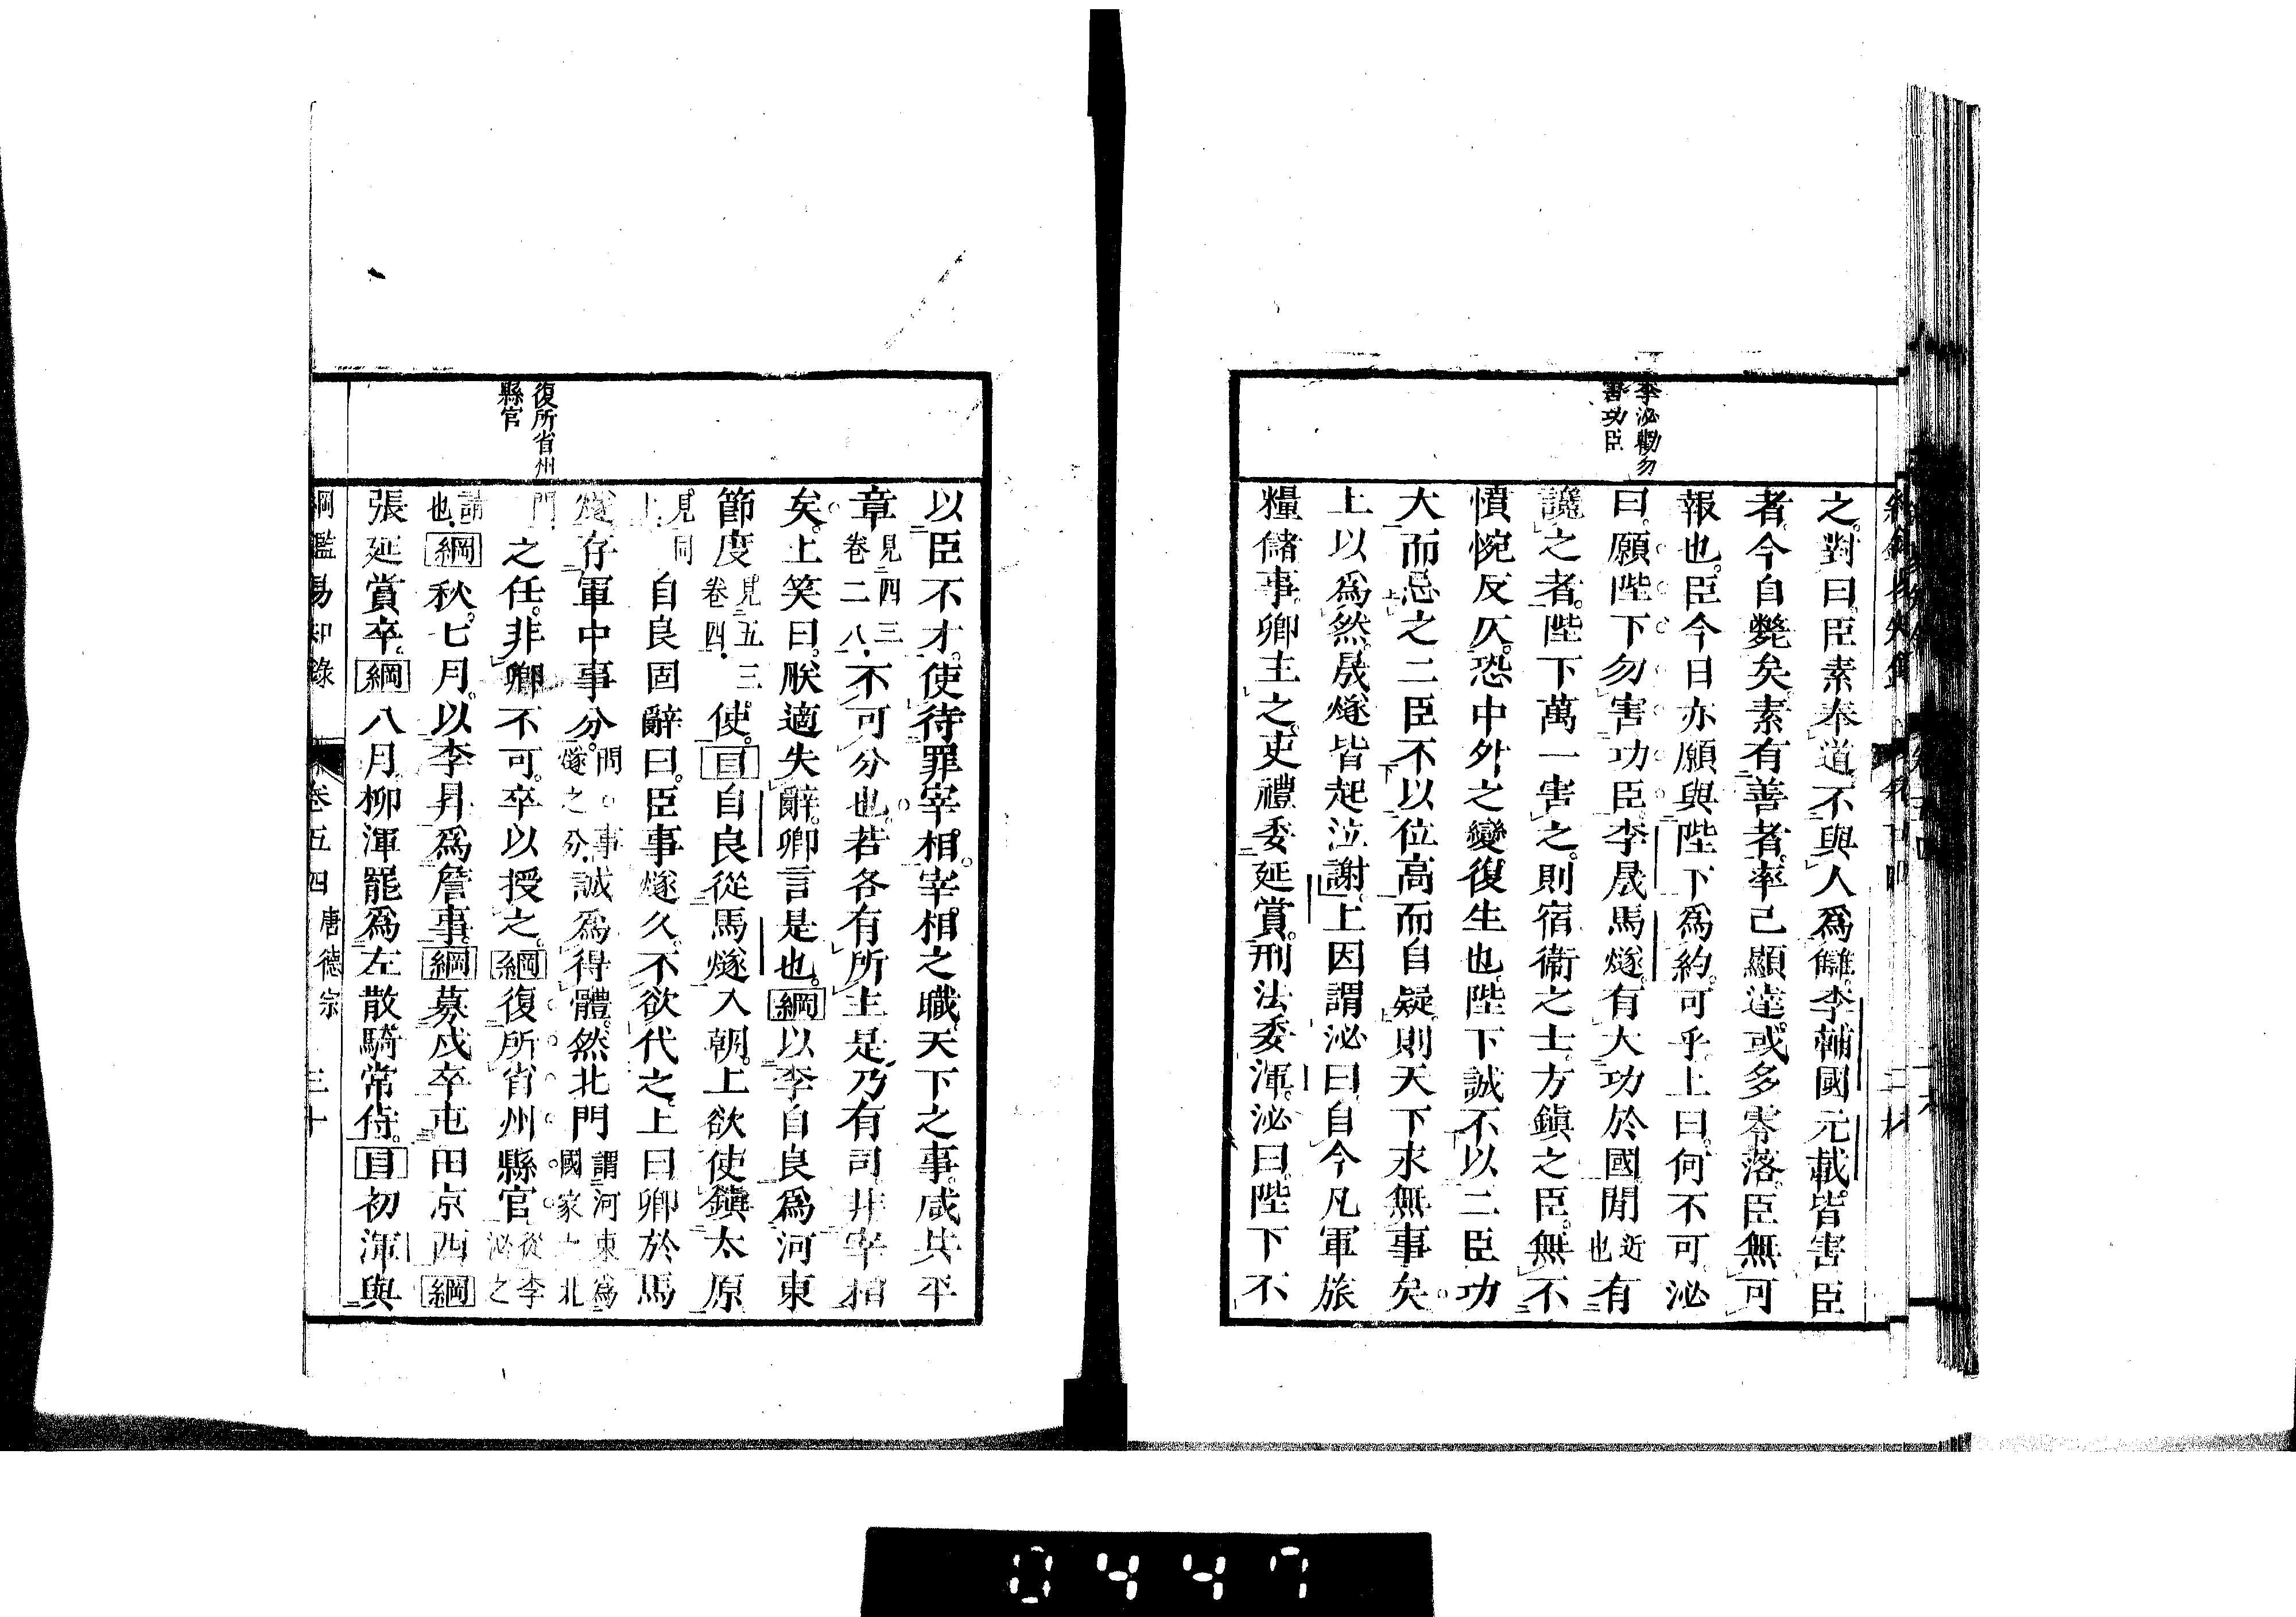 李泌勸勿
害功臣
之。對曰。臣素奉道。不與人爲讎。李輔國元載。皆害臣
者。今自斃矣。素有善者。率己顯達。或多零落。臣無可
報也。臣今日亦願與陛下爲約。可乎。上曰。何不可。泌
曰。願陛下勿害功臣。李晟馬燧。有大功於國。聞近也有
讒之者。陛下萬一害之。則宿衞之士。方鎭之臣。無不
憤惋反仄。恐中外之變復生也。陛下誠不以二臣功
大而忌之。二臣不以位高而自疑。則天下永無事矣。
上以爲然。晟燧皆起泣謝。上因謂泌曰。自今凡軍旅
糧儲事。卿主之。吏禮委延賞。刑法委渾。泌曰。陛下不
復所省州
縣官
以臣不才。使待罪宰相。宰相之職。天下之事。咸共平
章見四三卷二八。不可分也。若各有所主。是乃有司。非宰相
矣。上笑曰。朕適失辭。卿言是也。綱以李自良爲河東
節度見五三卷四。使。目自良從馬燧入朝。上欲使鎭太原
見同上。自良固辭曰。臣事燧久。不欲代之。上曰卿於馬
燧。存軍中事分。間事燧之分。誠爲得體。然北門謂河東爲國家之北
門。之任。非卿不可。卒以授之。綱復所省州縣官。從李泌之
請也。綱秋。七月。以李昇爲詹事。綱募戍卒屯田京西綱
張延賞卒。綱八月。柳渾罷爲左散騎常侍。目初渾與
綱鑑易知錄 卷五四 唐德宗 三十
0447